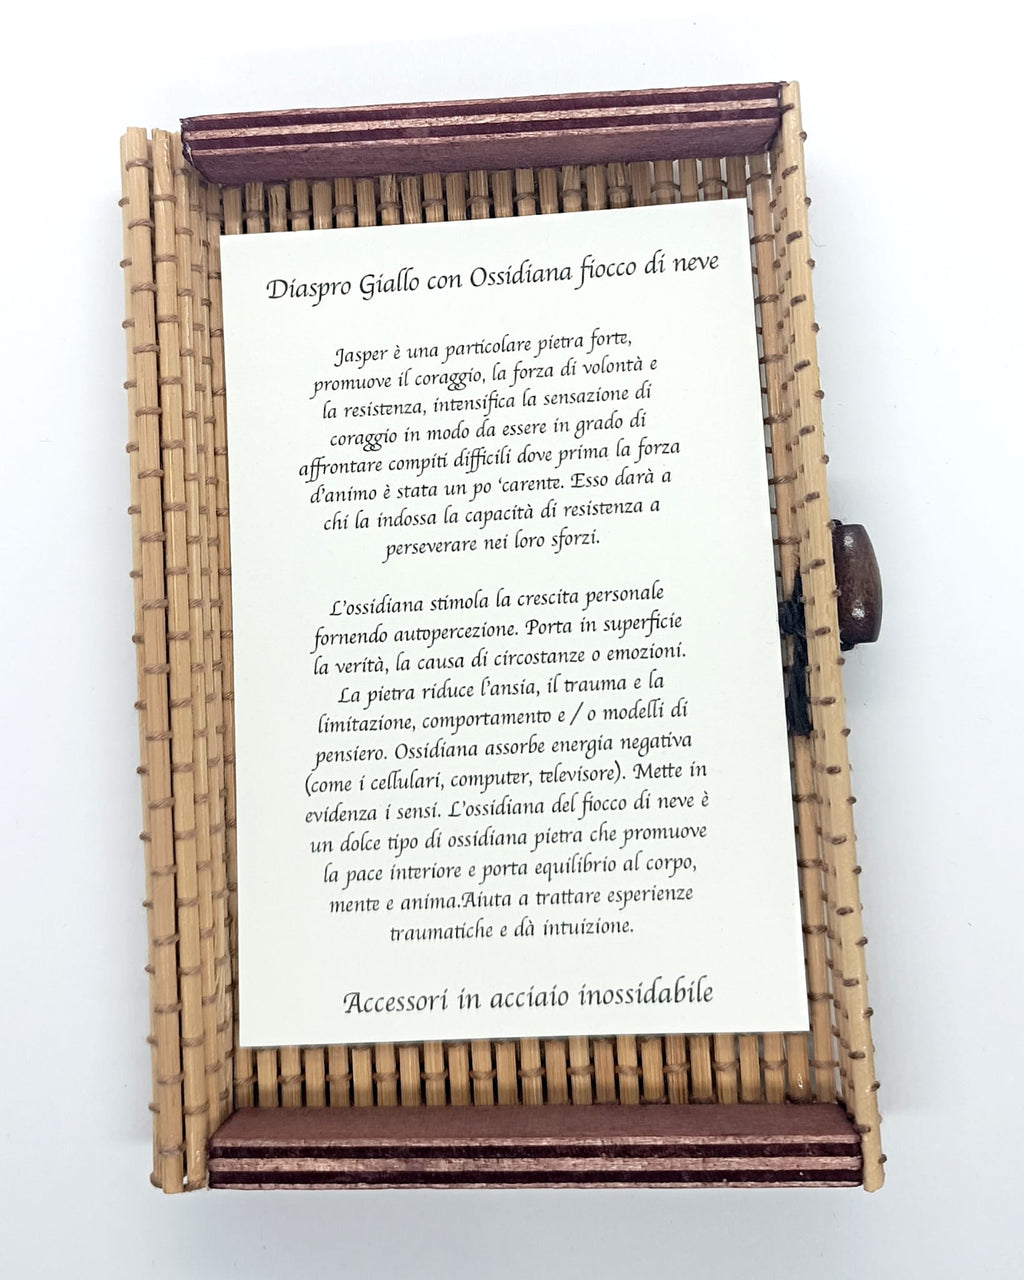 Diaspro Giallo con Ossidiana fiocco di neve
Jasper è una particolare pietra forte,
promuove il coraggio, la forza di volontà e
la resistenza, intensifica la sensazione di
coraggio in modo da essere in grado di
affrontare compiti difficili dove prima la forza
d'animo è stata un po 'carente. Esso darà a
chi la indossa la capacità di resistenza a
perseverare nei loro sforzi.
L'ossidiana stimola la crescita personale
fornendo autopercezione. Porta in superficie
la verità, la causa di circostanze o emozioni.
La pietra riduce l'ansia, il trauma e la
limitazione, comportamento e / o modelli di
pensiero. Ossidiana assorbe energia negativa
(come i cellulari, computer, televisore). Mette in
evidenza i sensi. L'ossidiana del fiocco di neve è
un dolce tipo di ossidiana pietra che promuove
la pace interiore e porta equilibrio al corpo,
mente e anima.Aiuta a trattare esperienze
traumatiche e dà intuizione.
Accessori in acciaio inossidabile